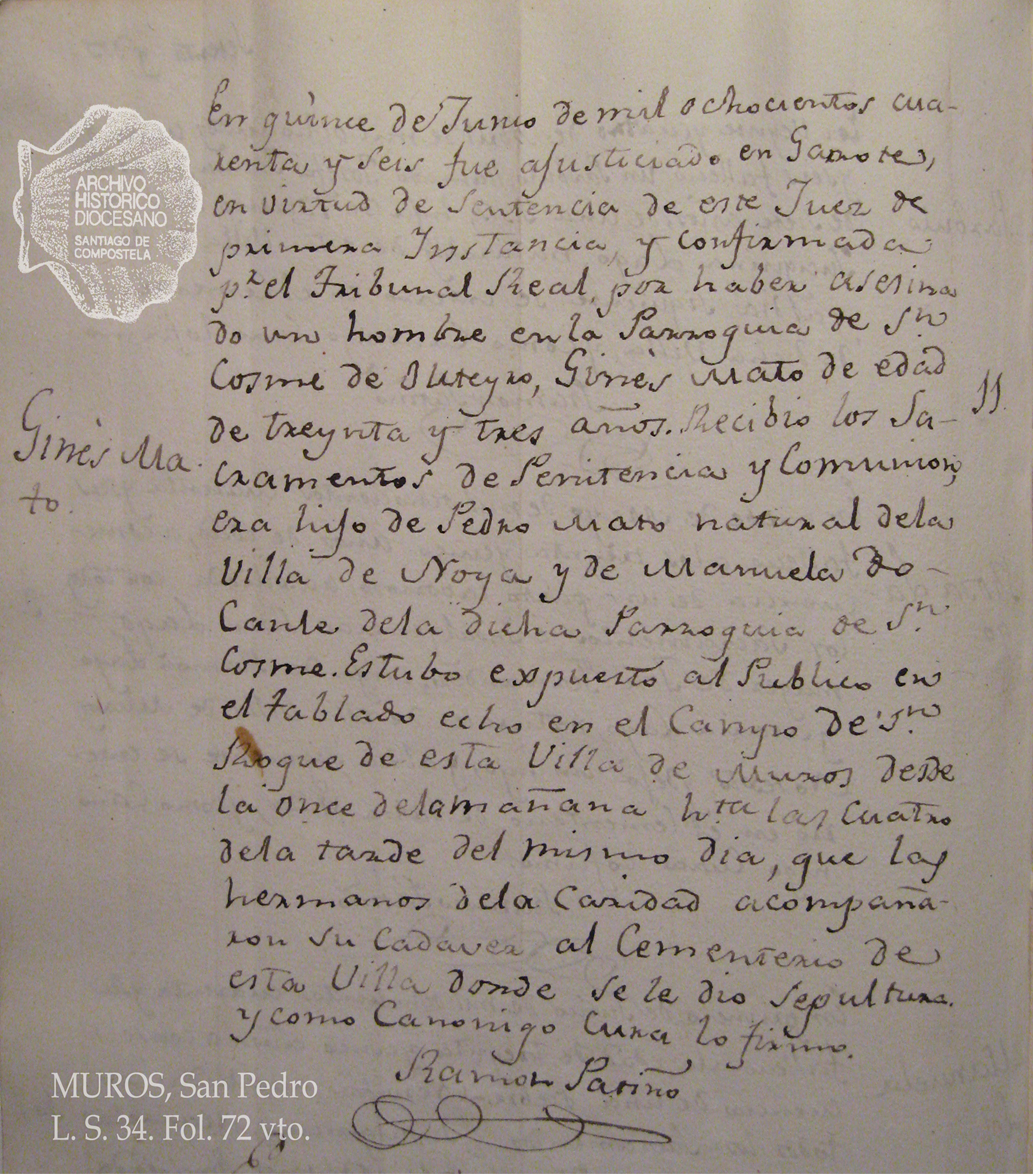 En quince de Junio de mil ochocientos cua-
renta y seis fue ajusticiado en Garrote,
en virtud de Sentencia de este Juez de
primera Instancia, y confirmada
pr. el Tribunal Real, por haber asesina
do un hombre en la Parroquia de Sn
Cosme de Outeyro, Ginès Mato de edad
de treynta y tres años. Recibio los Sa-
cramentos de Penitencia y Comunion,
era hijo de Pedro Mato natural dela
Villa de Noya y de Manuela Do-
Canle dela dicha Parroquia de Sn.
Cosme. Estubo expuesto al Publico en
el tablado echo en el Campo de Sn.
Roque de esta Villa de Muros desde
la once delamañana hta las cuatro
dela tarde del mismo dia, que las
hermanos dela Caridad acompaña-
ron su Cadaver al Cementerio de
esta Villa donde se le dio sepultura.
y como Canonigo Cura lo firmo.
Ramon Patiño
Ginès Ma
to.
11
ARCHIVO
HISTORICO
DIOCESANO
SANTIAGO DE
COMPOSTELA
MUROS, San Pedro
L. S. 34. Fol. 72 vto.